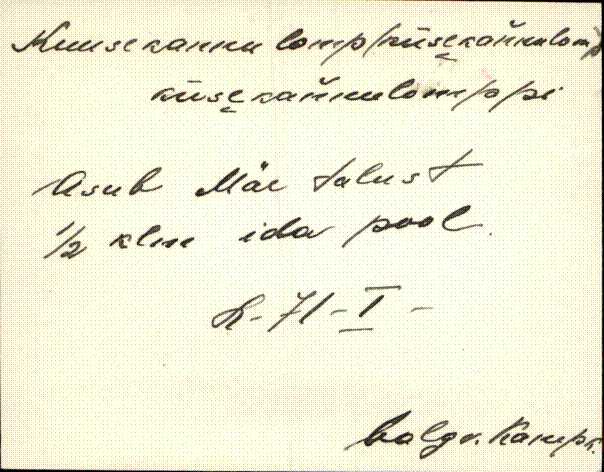 Kuusekannu lomp /küsekannulomp
küsekannulomppi
Asub Mäe talust
1/2 klm ida pool.
K-71-I-
Valgv. Kamps.